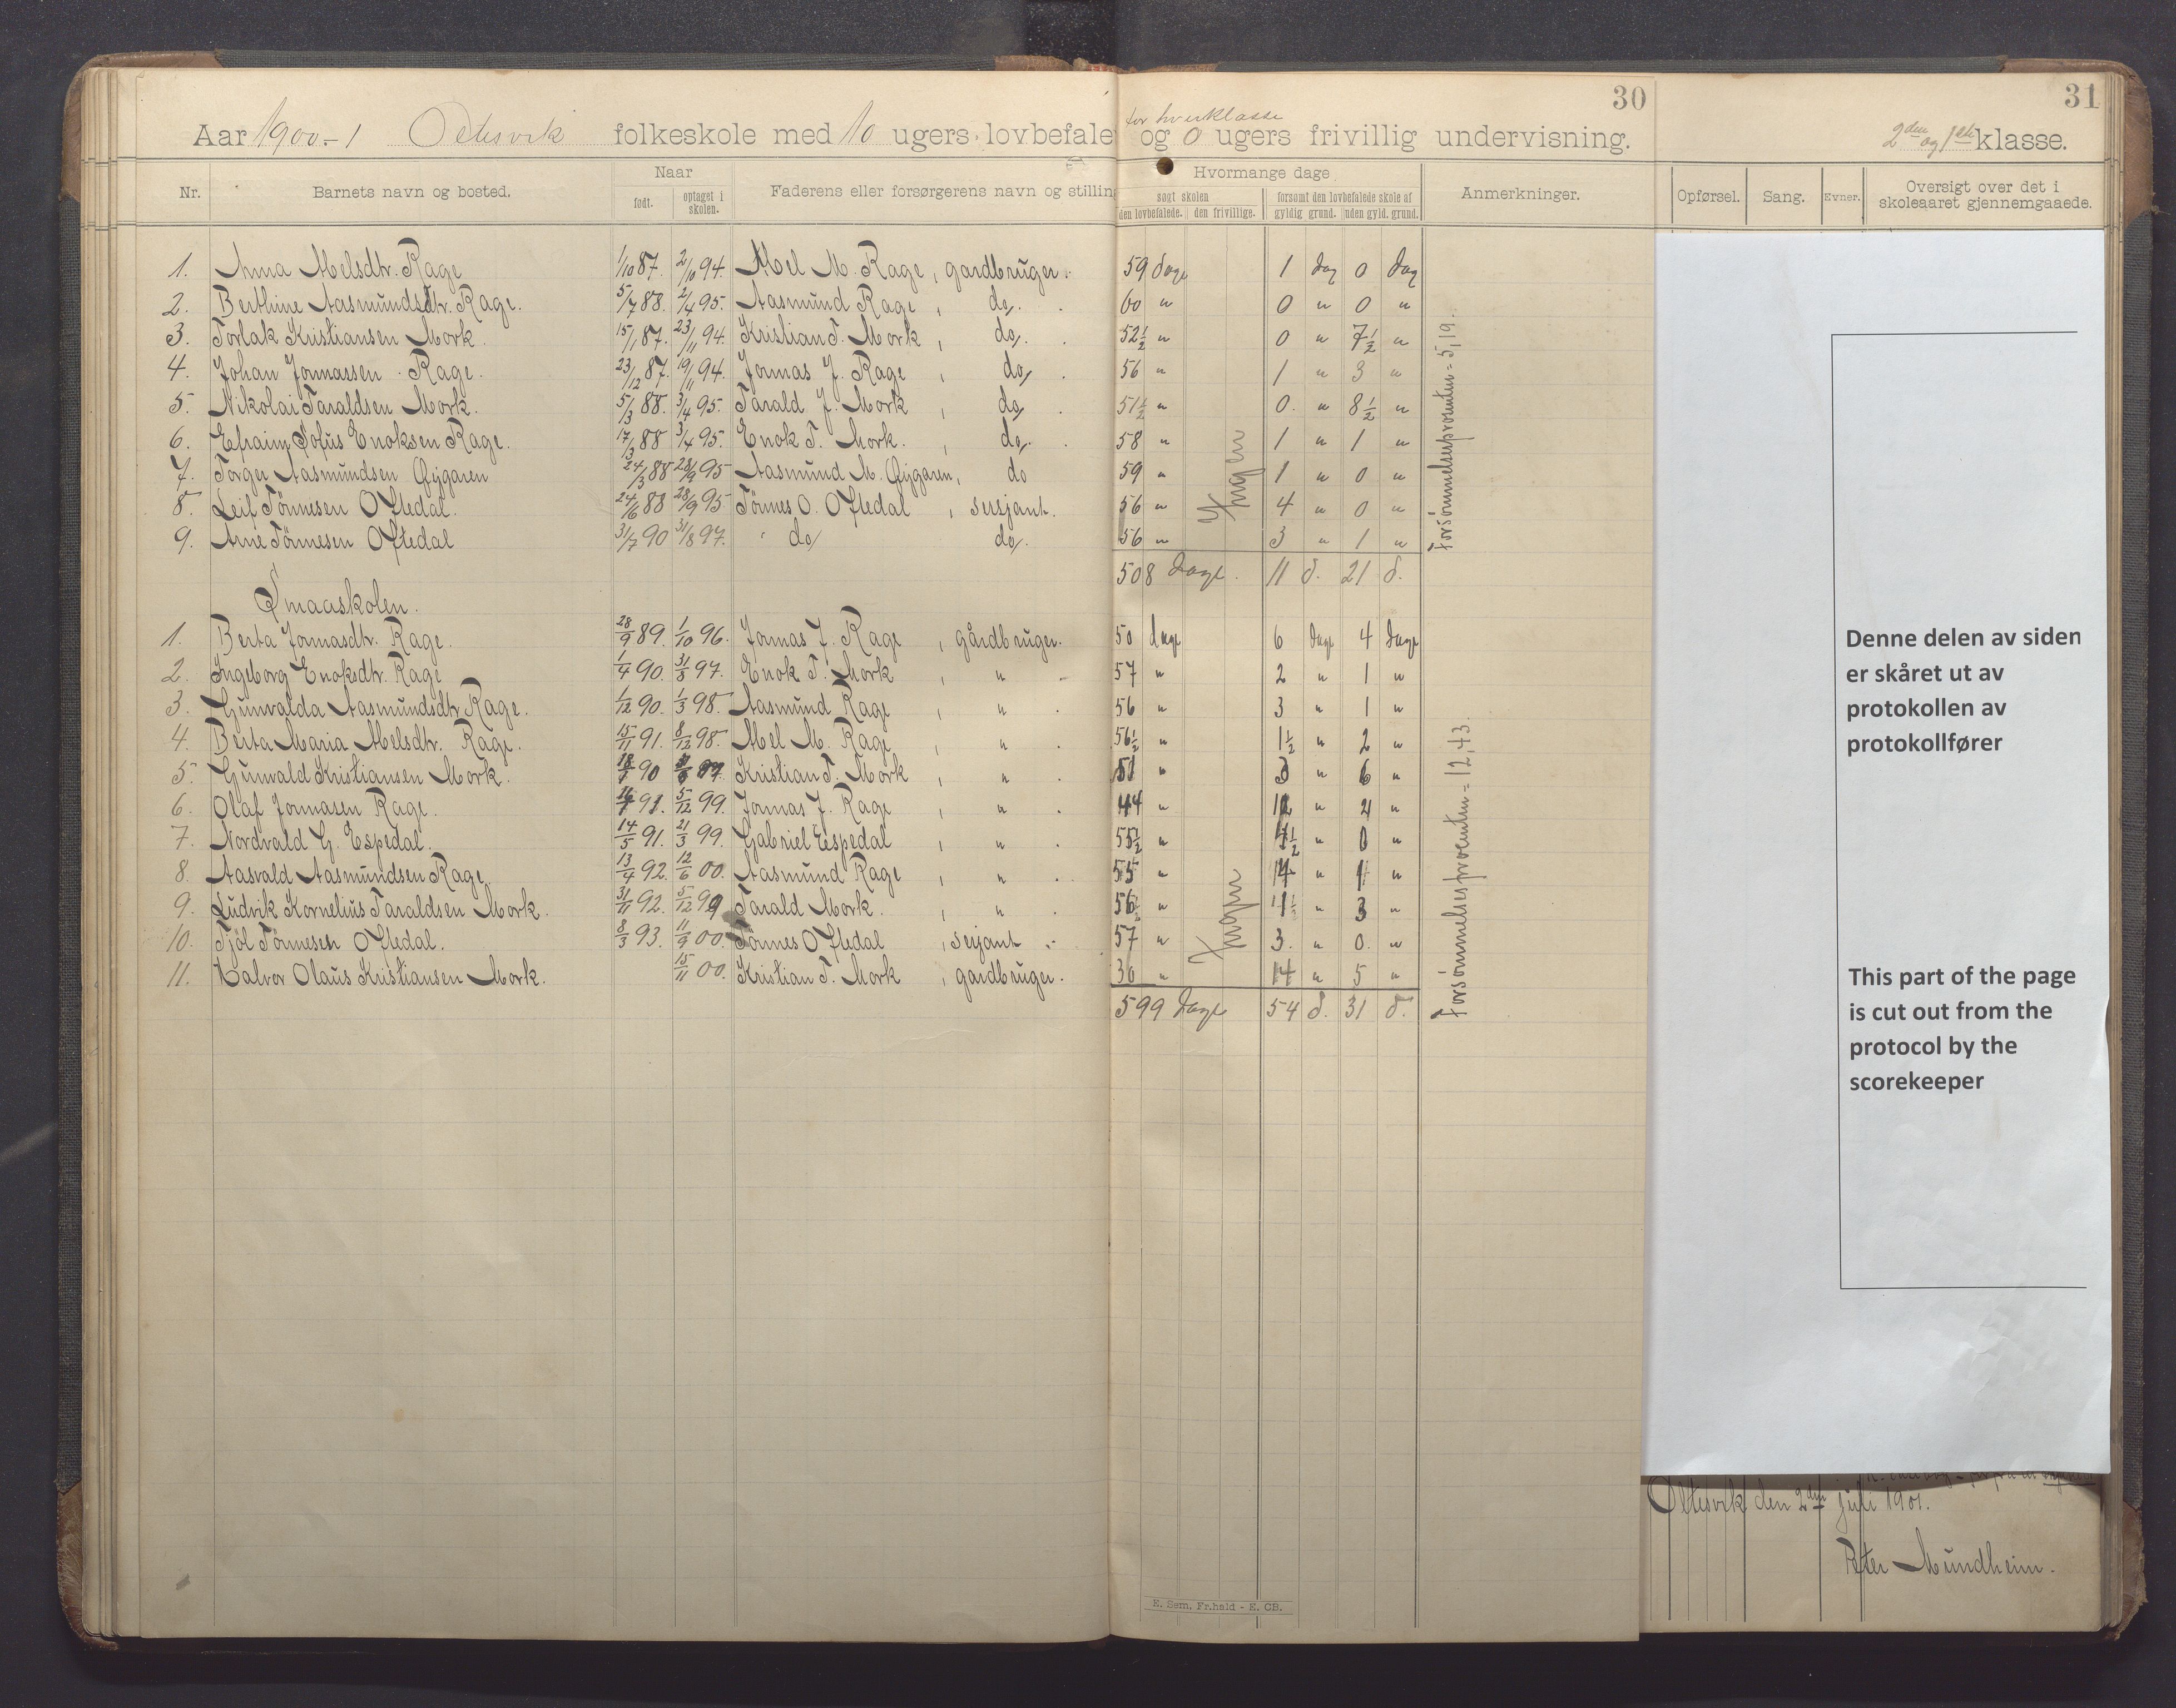 30
31
for hverklasse
Aar 1900-1 Oltesvik folkeskole med 10 ugers lovbefale og 0 ugers frivillig undervisning. 2den og 1ste klasse.
Nr. Barnets navn og bosted. Naar født. optaget i skolen. Faderens eller forsørgerens navn og stillin Hvormange dage søgt skolen den lovbefalede. den frivillige. forsømt den lovbefalede skole af gyldig grund. uden gyld. grund. Anmerkninger. Opførsel. Sang. Evner. Oversigt over det i skoleaaret gjennemgaaede.
1. Anna Melsdtr. Rage 1/10 87. 2/10 94. Mel M. Rage, gardbruger. 59 dage 1 dag 0 dag
2. Berthine Aasmundsdtr. Rage. 5/7 88. 2/4 95. Aasmund Rage, do. 60 " 0 " 0 "
3. Torlak Kristiansen Mork. 15/1 87. 23/11 94. Kristian T. Mork, do. 52½ " 0 " 7½ "
4. Johan Jonnassen Rage. 23/12 87. 19/11 94. Jonnas J. Rage, do. 56 " 1 " 3 "
5. Nikolai Taraldsen Mork. 5/3 88. 3/4 95. Tarald J. Mork, do. 51½ " 0. " 8½ "
6. Efraim Sofus Enoksen Rage. 17/3 88 3/4 95. Enok T. Mork. , do. 58 " 1 " 1 "
7. Torger Aasmundsen Øygaren 24/3 88 28/9 95 Aasmund M. Øygaren, do 59 " 1 " 0 "
8. Leif Tönnesen Oftedal. 24/6 88 28/9 95 Tönnes O. Oftedal, sersjant. 56 " 4 " 0 "
9. Arne Tönnesen Oftedal 31/7 90 31/8 97. do do. 56 " 3 " 1 "
Ingen
Forsömmelsesprocenten = 5,19.
508 Dage. 11 d. 21 d.
Smaaskolen.
1. Berta Jonnasdtr. Rage. 28/9 89. 1/10 96. Jonnas J. Rage, gårdbruger. 50 dage 6 dage 4 dage
2. Ingeborg Enoksdtr. Rage 1/4 90. 31/8 97. Enok T. Mork, " 57 " 2 " 1 "
3. Gunvalda Aasmundsdtr Rage. 1/12 90. 1/3 98. Aasmund Rage, " 56 " 3 " 1 "
4. Berta Maria Melsdtr. Rage. 15/11 91. 8/12 98. Mel M. Rage, " 56½ " 1½ " 2 "
5. Gunvald Kristiansen Mork. 90 Kristian T. Mork, " 51 " 3 " 6 "
6. Olaf Jonnasen Rage. 91. 5/12 99. Jonnas J. Rage, " 44 " 12 " 4 "
7. Nordvald G. Espedal. 14/5 91. 21/3 99. Gabriel Espedal, " 55½ " 4½ " 0 "
8. Aasvald Aasmundsen Rage. 13/4 92. 12/6 00. Aasmund Rage, " 55 " 4 " 1 "
9. Ludvik Kornelius Taraldsen Mork. 31/11 92. 5/12 99 Tarald Mork. , " 56½ " 1½ " 3 "
10. Tjöl Tönnesen Oftedal. 8/3 93. 11/9 00. Tönnes Oftedal, serjant 57 " 3. " 0. "
11. Halvor Olaus Kristiansen Mork. 15/11 00. Kristian T. Mork, gardbruger. 30 " 14 " 5 "
Ingen
Forsömmelsesprocenten = 12,43.
599 Dage 54 d. 31 d.
Denne delen av siden
er skåret ut av
protokollen av
protokollfører
This part of the page
is cut out from the
protocol by the
scorekeeper
Oltesvik den 2den juli 1901.
Peter Mundheim.
E. Sem, Fr.hald - E. CB.